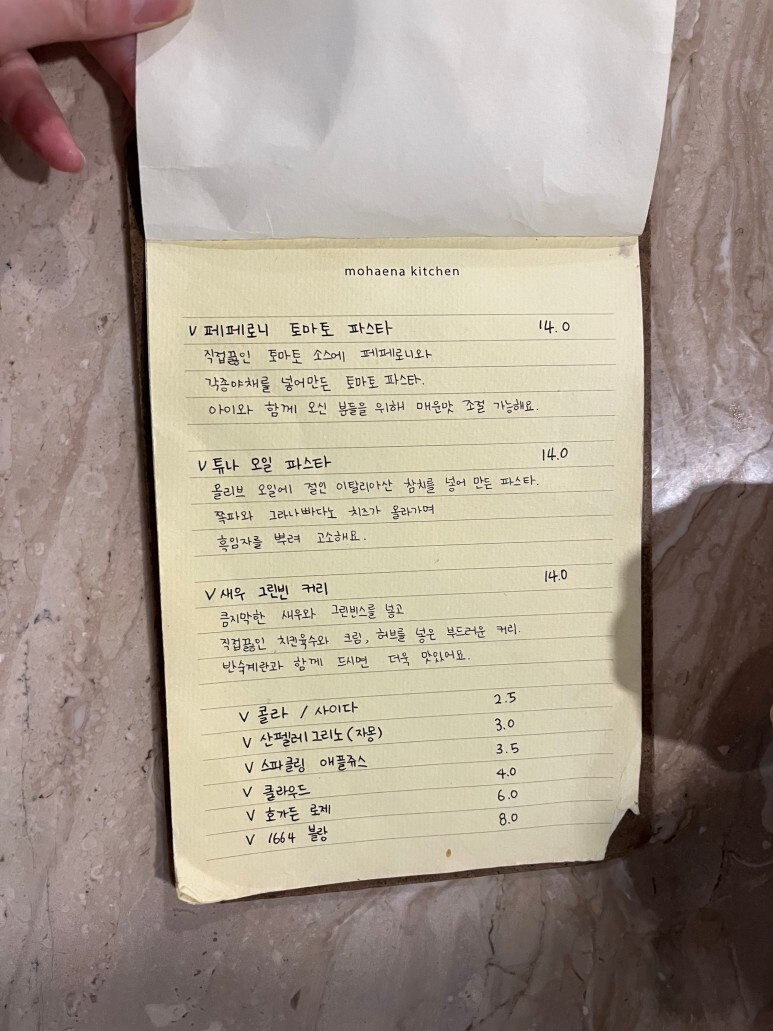 mohaena kitchen
V 페페로니 토마토 파스타 14.0
직접끓인 토마토 소스에 페페로니와
각종야채를 넣어만든 토마토 파스타.
아이와 함께 오신 분들을 위해 매운맛 조절 가능해요.
V 튜나 오일 파스타 14.0
올리브 오일에 절인 이탈리아산 참치를 넣어 만든 파스타.
쪽파와 그라나빠다노 치즈가 올라가며
흑임자를 뿌려 고소해요.
V 새우 그린빈 커리 14.0
큼지막한 새우와 그린빈스를 넣고
직접끓인 치킨육수와 크림, 허브를 넣은 부드러운 커리.
반숙계란과 함께 드시면 더욱 맛있어요.
V 콜라 / 사이다 2.5
V 산펠레그리노(자몽) 3.0
V 스파클링 애플쥬스 3.5
V 클라우드 4.0
V 호가든 로제 6.0
V 1664 블랑 8.0